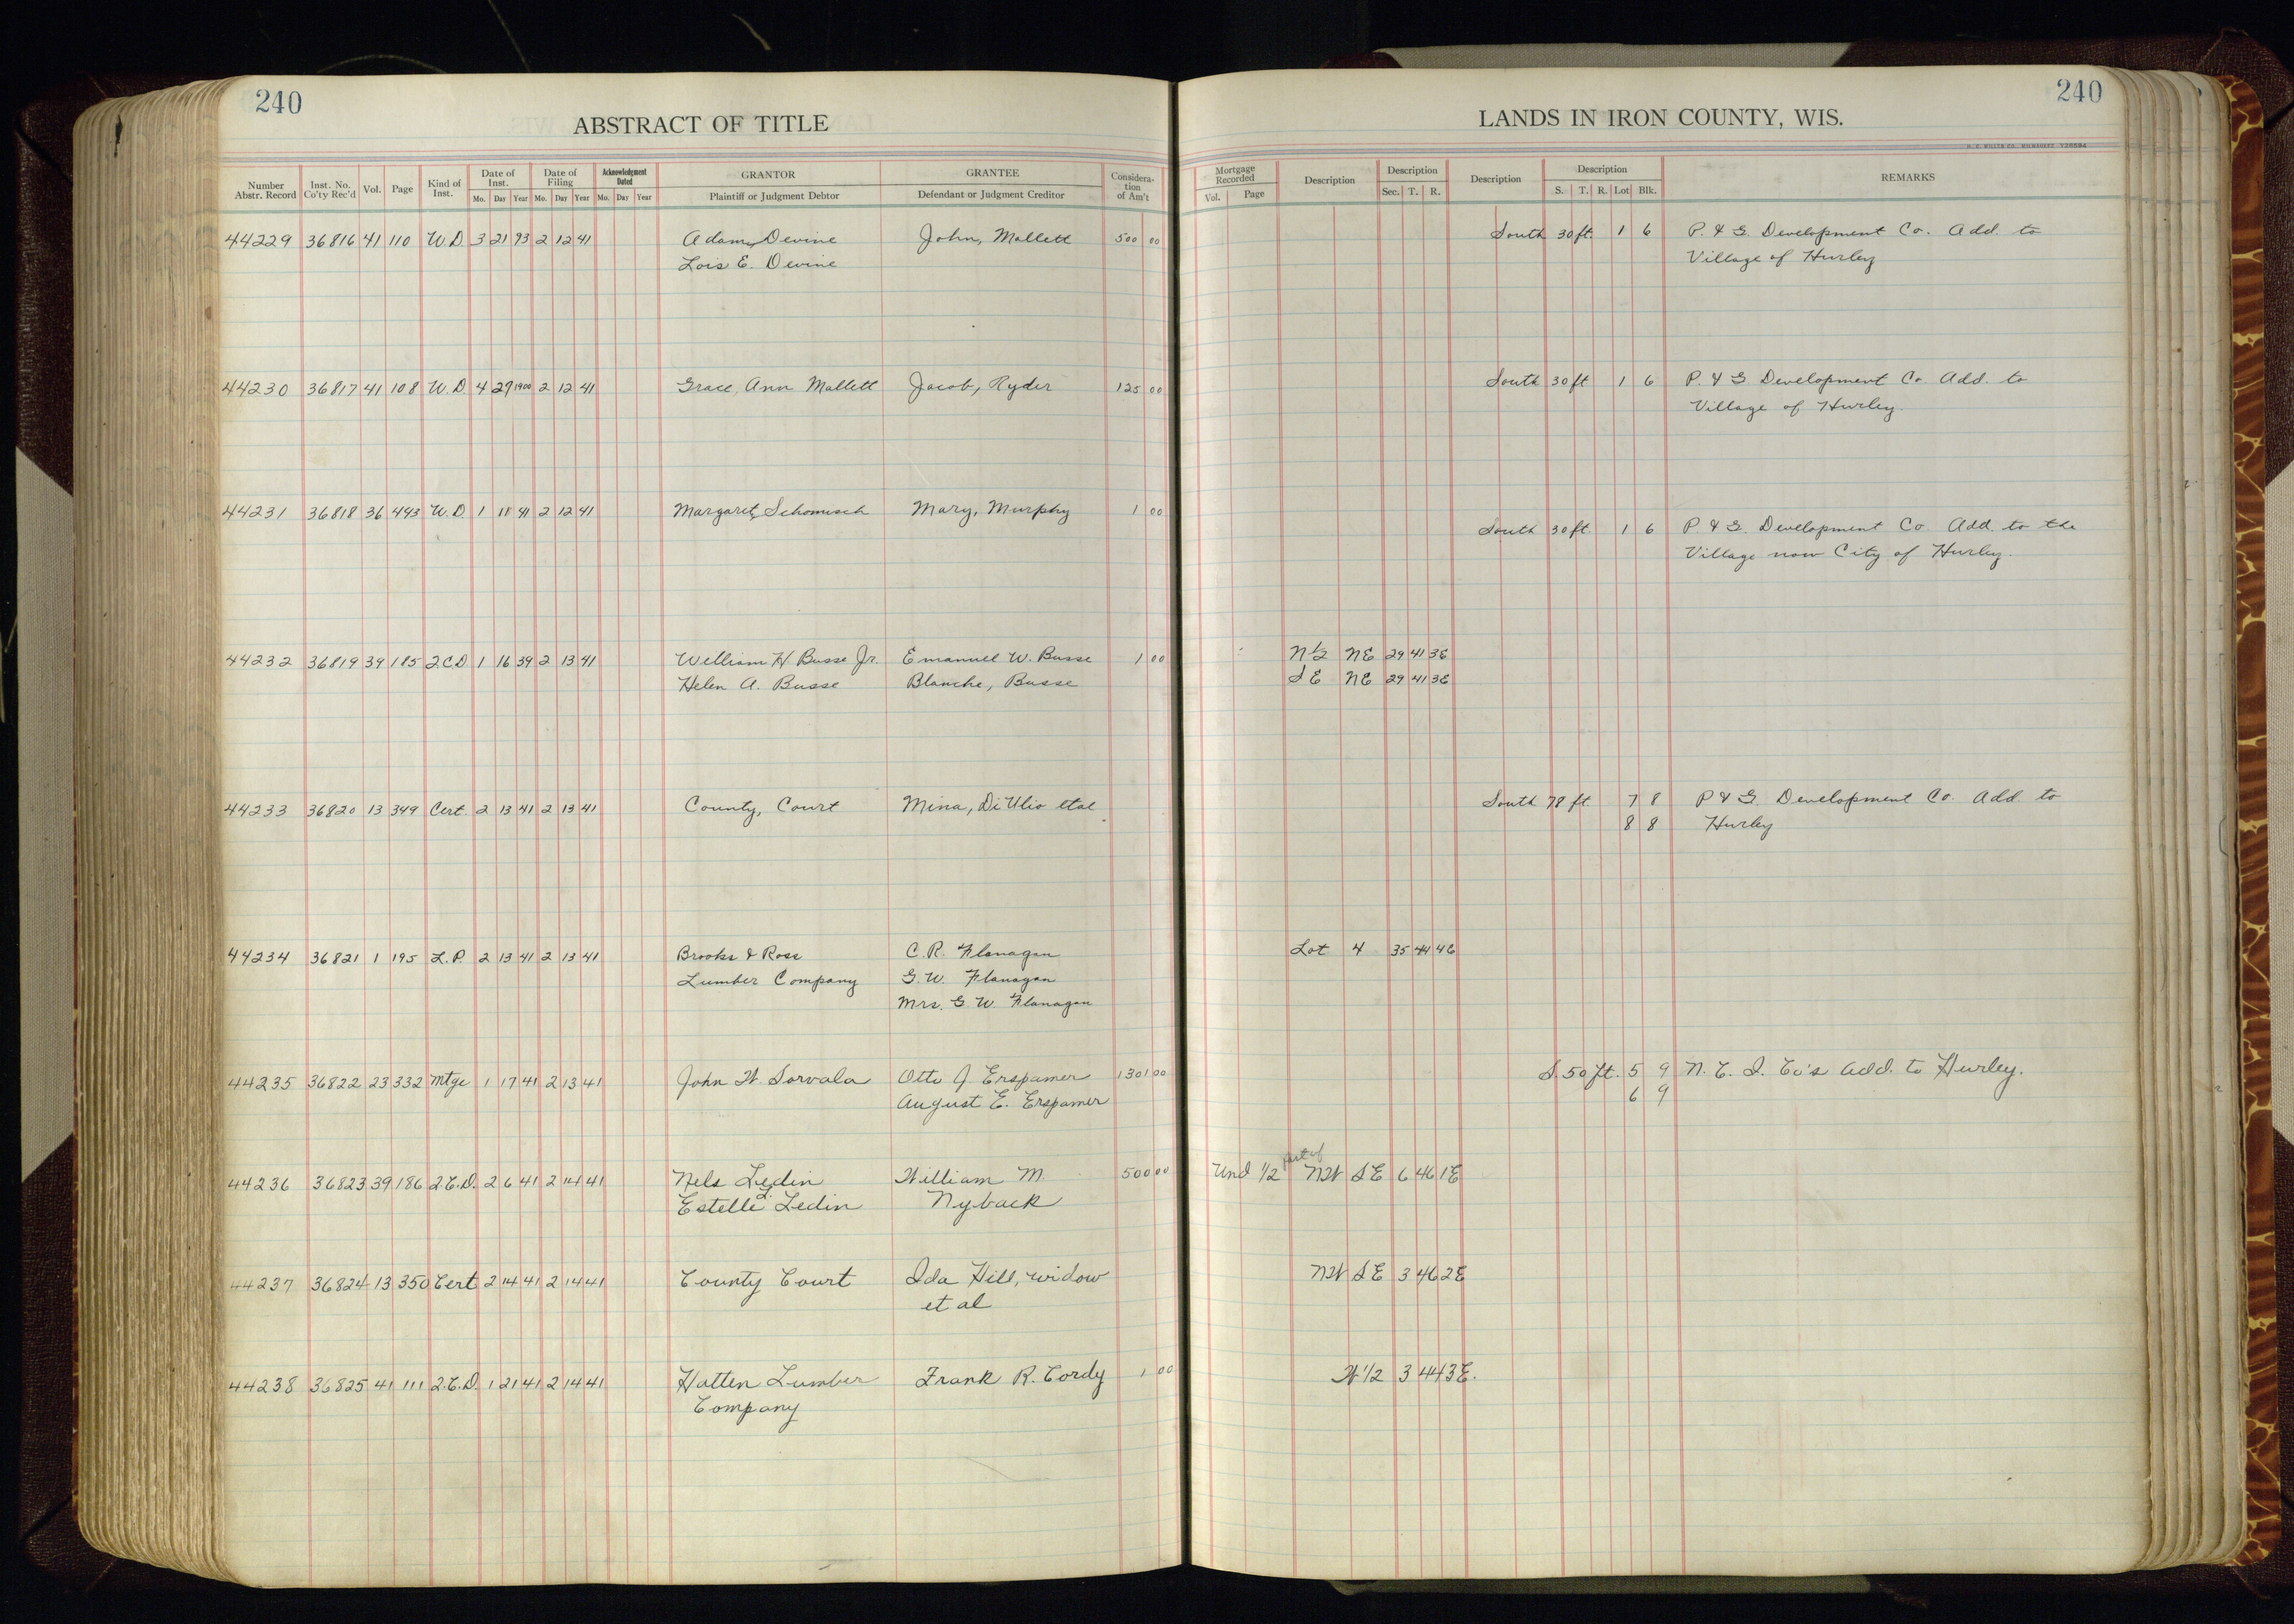 240
ABSTRACT OF TITLE
Number Abstr. Record | Inst. No. Co'ty Rec'd | Vol. | Page | Kind of Inst. | Date of Inst. Mo. Day Year | Date of Filing Mo. Day Year | Acknowledgment Dated Mo. Day Year | GRANTOR Plaintiff or Judgment Debtor | GRANTEE Defendant or Judgment Creditor | Considera-tion of Am't
44229 36816 41 110 W.D 3 21 93 2 12 41 Adam, Devine John, Mallett 500 00
Lois E. Devine
44230 36817 41 108 W.D 4 27 1900 2 12 41 Grace, Ann Mallett Jacob, Ryder 125 00
44231 36818 36 493 W.D. 1 11 41 2 12 41 Margaret, Schomisch Mary, Murphy 1 00
44232 36819 39 185 2CD 1 16 39 2 13 41 William H Busse Jr. Emanuel W. Busse 1 00
Helen A. Busse Blanche, Busse
44233 36820 13 349 Cert. 2 13 41 2 13 41 County, Court Mina, DiUlio etal
44234 36821 1 195 L.P. 2 13 41 2 13 41 Brooks & Ross C.R. Flanagan
Lumber Company G.W. Flanagan
Mrs. G W. Flanagan
44235 36822 23 332 Mtge 1 17 41 2 13 41 John W. Sorvala Otto J Erspamer 1301 00
August E. Erspamer
44236 36823 39 186 2.C.D. 2 6 41 2 14 41 Nels Ledin William M. 500 00
Estelle L. Ledin Nyback
44237 36824 13 350 Cert 2 14 41 2 14 41 County Court Ida Hill, widow
et al
44238 36825 41 111 2.C.D. 1 21 41 2 14 41 Hatten Lumber Frank R. Cordy 1 00
Company
240
LANDS IN IRON COUNTY, WIS.
H. C. MILLER CO., MILWAUKEE
Mortgage Recorded Vol. Page | Description | Description Sec. T. R. | Description | Description S. T. R. Lot Blk. | REMARKS
South 30 ft. 1 6 P. & G. Development Co. Add. to
Village of Hurley
South 30 ft 1 6 P. & G Development Co Add. to
Village of Hurley.
South 30 ft. 1 6 P. & G. Development Co Add. to the
Village now City of Hurley.
N½ NE 29 41 3E
SE NE 29 41 3E
South 78 ft. 7 8 P & G. Development Co. Add. to
8 8 Hurley
Lot 4 35 44 4E
S. 50 ft. 5 9 N. C. I. Co's Add. to Hurley.
6 9
part of
Und 1/2 NW SE 6 46 1E
NW SE 3 46 2E
W 1/2 3 44 3E.